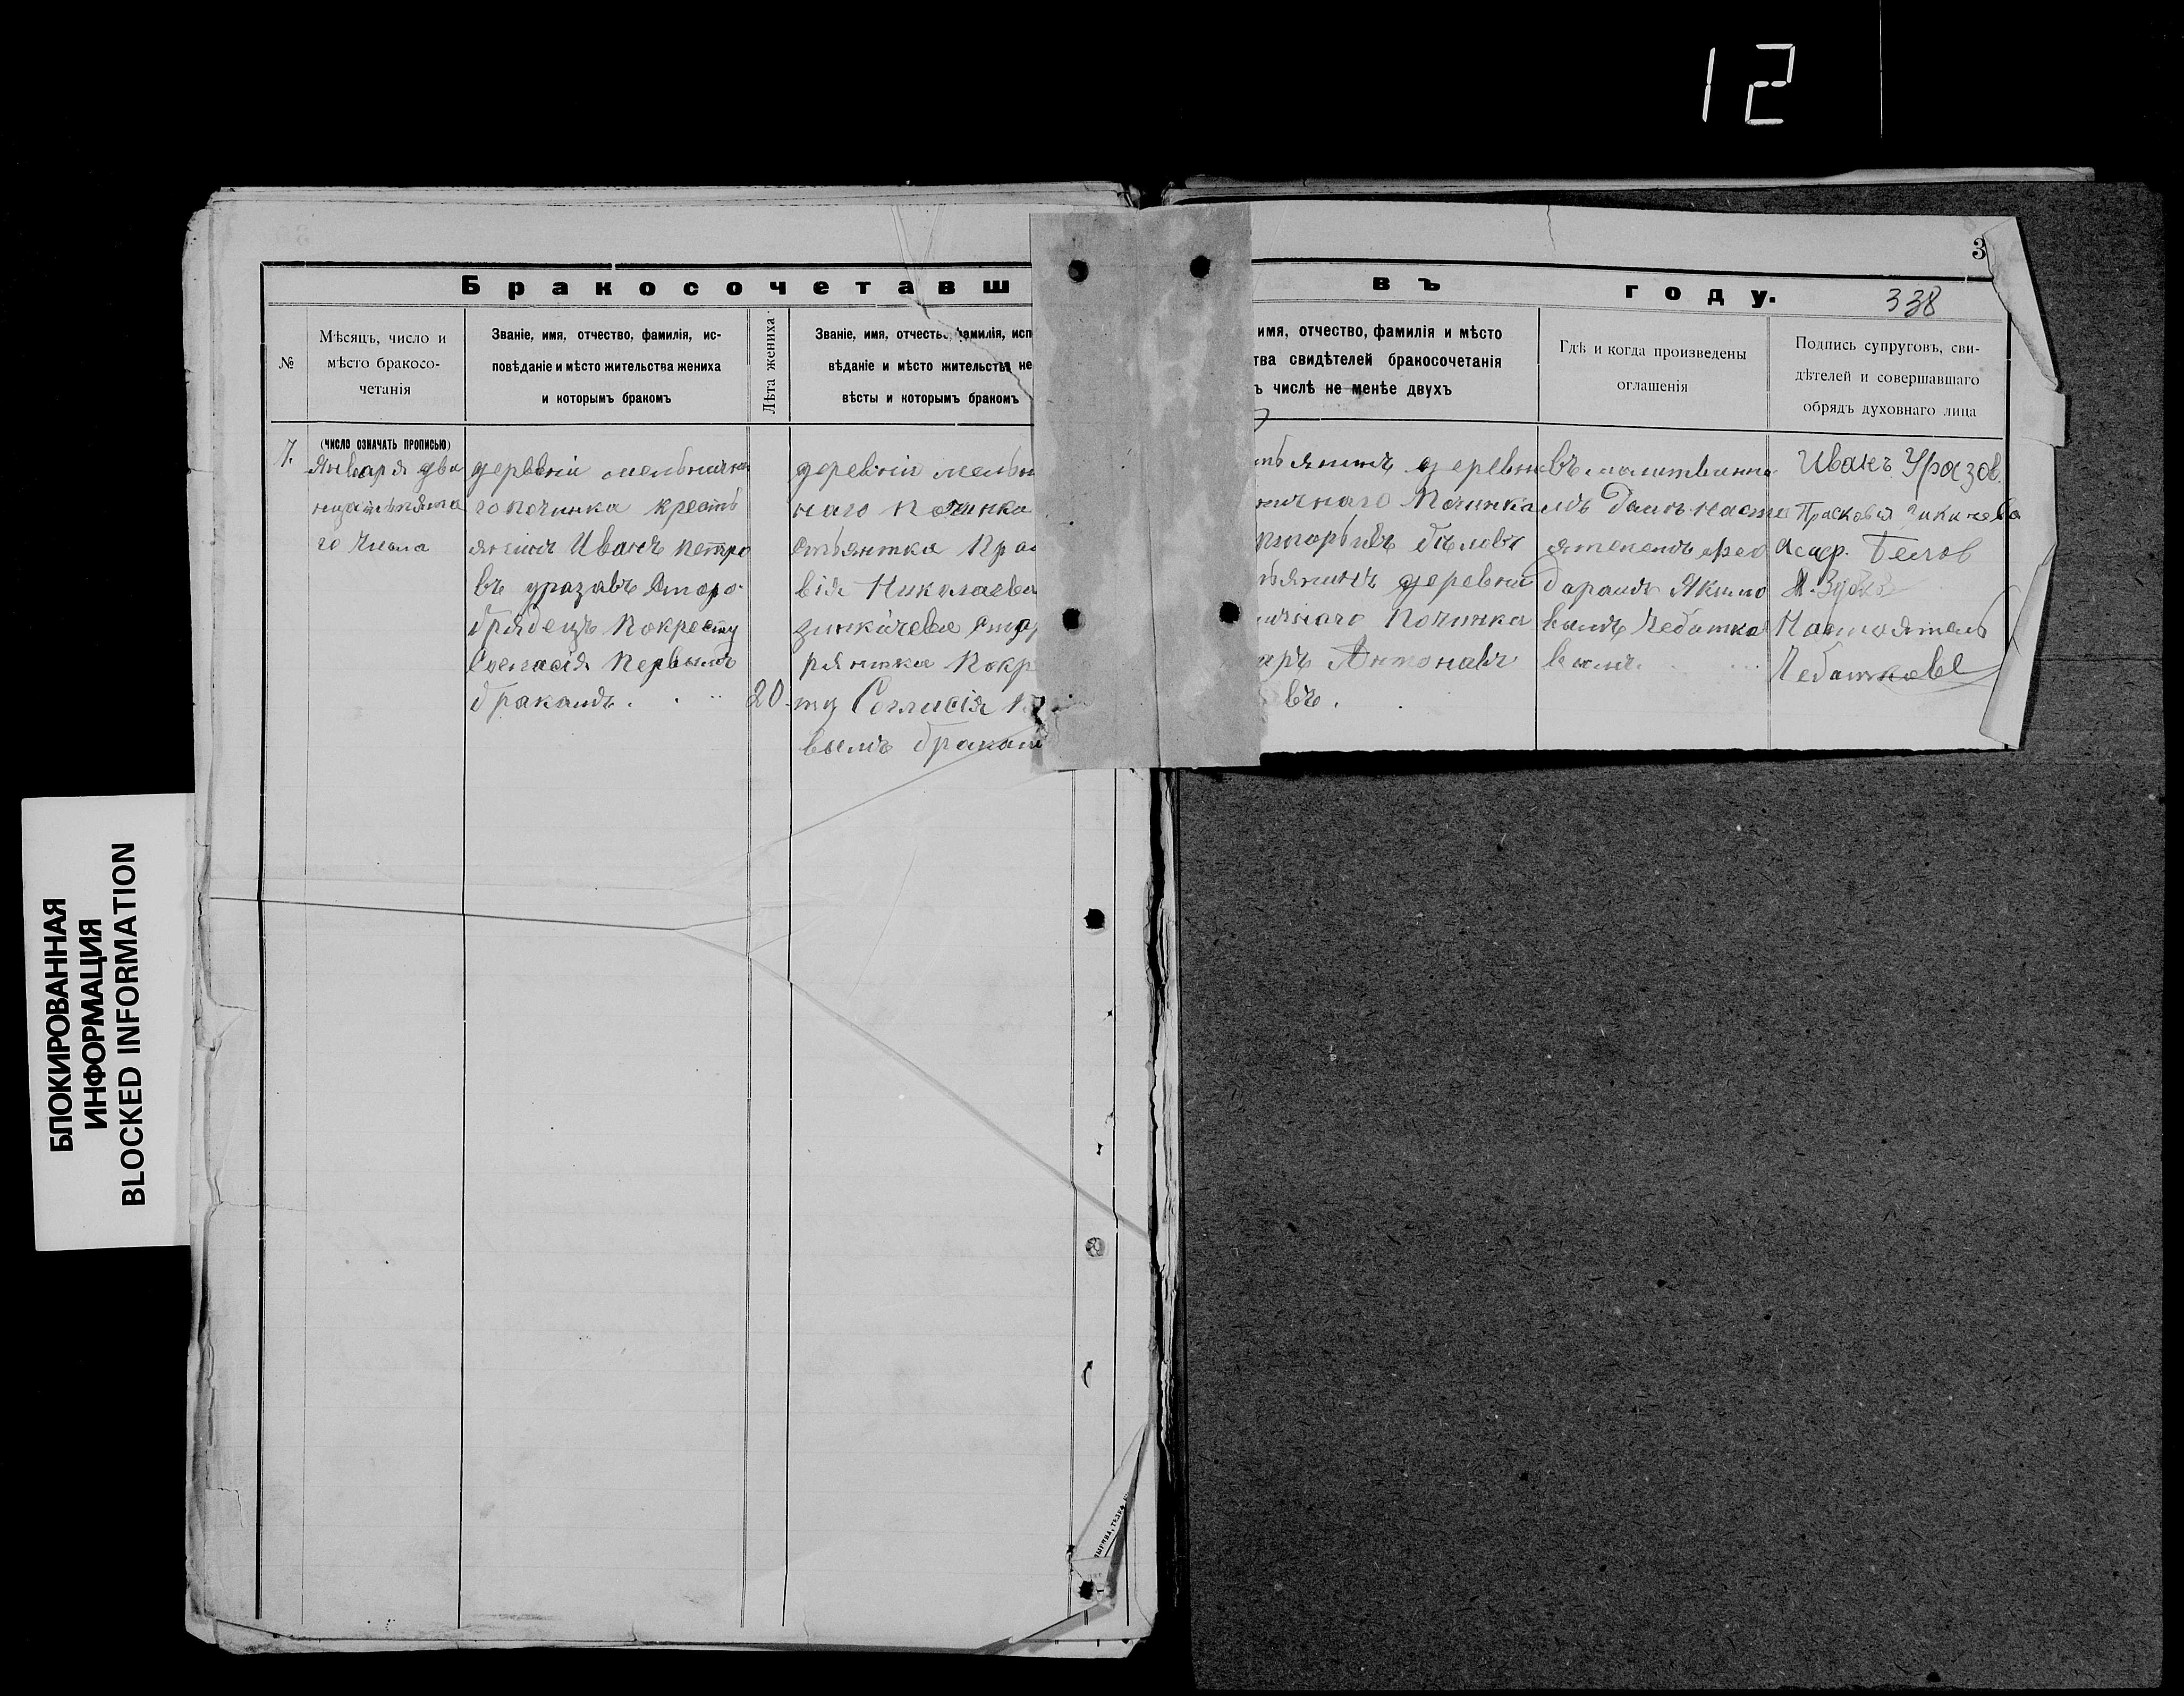 12
3
Бракосочетавш
въ году.
338
№
Мѣсяцъ, число и
мѣсто бракосо-
четанія
Званіе, имя, отчество, фамилія, ис-
повѣданіе и мѣсто жительства жениха
и которымъ бракомъ
Лѣта жениха.
Званіе, имя, отчество, фамилія, исп
вѣданіе и мѣсто жительства не
вѣсты и которымъ бракомъ
имя, отчество, фамилія и мѣсто
тва свидѣтелей бракосочетанія
ъ числѣ не менѣе двухъ
Гдѣ и когда произведены
оглашенія
Подпись супруговъ, сви-
дѣтелей и совершавшаго
обрядъ духовнаго лица
7.
(ЧИСЛО ОЗНАЧАТЬ ПРОПИСЬЮ)
Января два
го числа
деревни мельнична
го починка кресть
янинъ Иванъ Петро
въ уразавъ Старо
брядецъ Покресту
Согласія Первымъ
бракамъ.
20.
деревни мельн
наго Починка
стьянка Пра
вія Николаева
зинкичева Стар
рянтка Покр
ту Согласія
вымъ бракам
деревни
ничнаго Починка
бѣловъ
деревни
ичнаго Починка
аръ Антонавъ
въ.
въ малитвинна
мъ Дамъ наста
ятелемъ фео
дарамъ Якимо
вымъ Чебатка
вымъ.
Иванъ Уразов.
Прасковья Зикичева
Белов
Настоятель
Чебатковъ
БЛОКИРОВАННАЯ
ИНФОРМАЦИЯ
BLOCKED INFORMATION